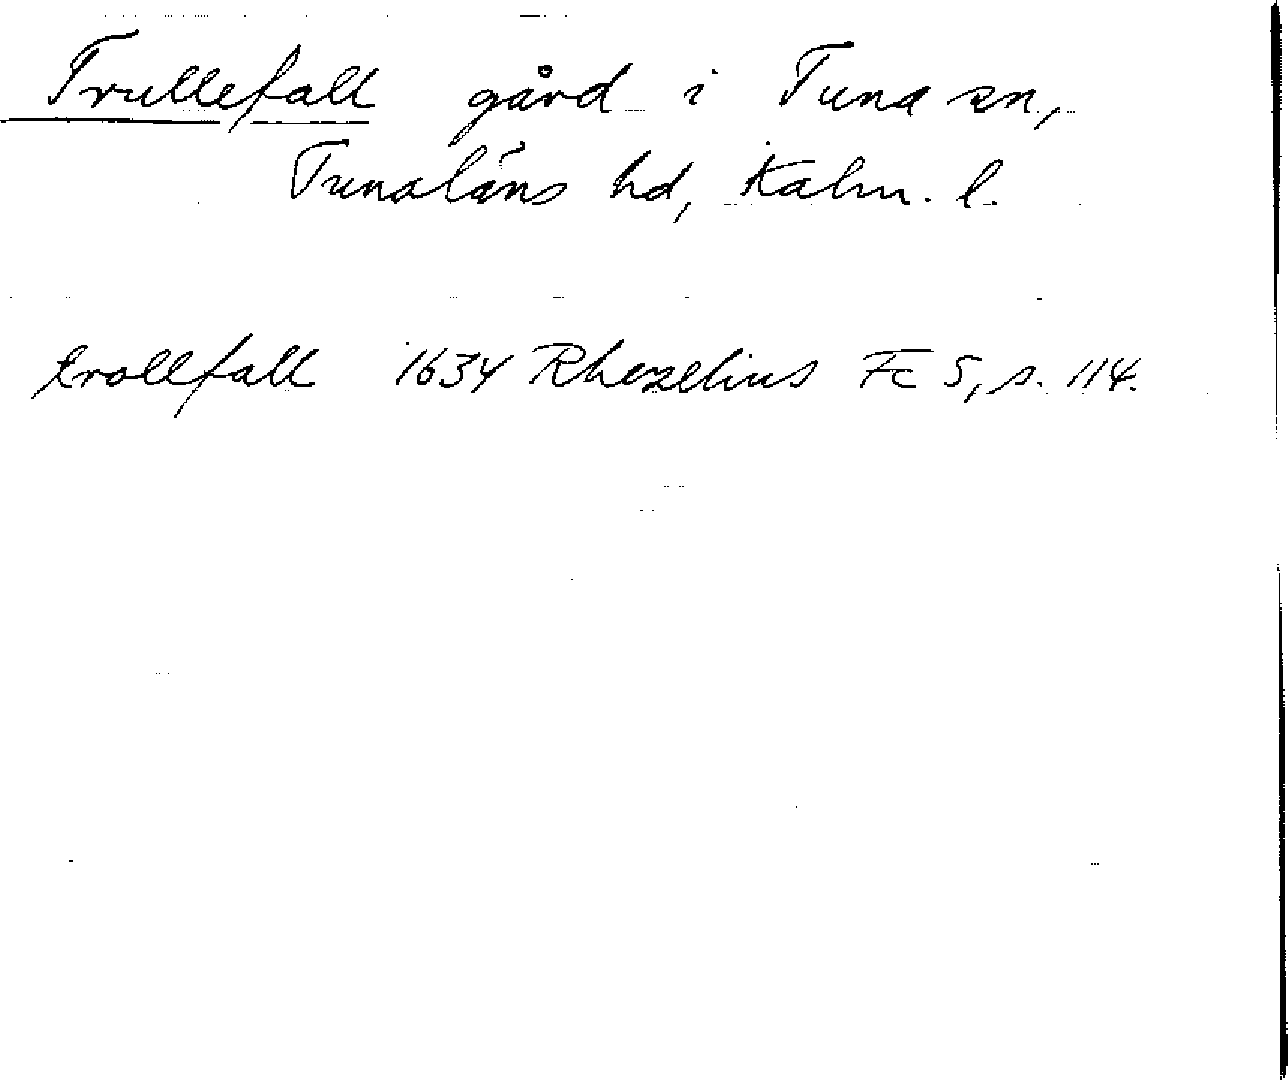 Trullefall gård i Tuna sn,
Tunaläns hd, Kalm. l.
trollfall 1634 Rhezelius Fc 5, s. 114.